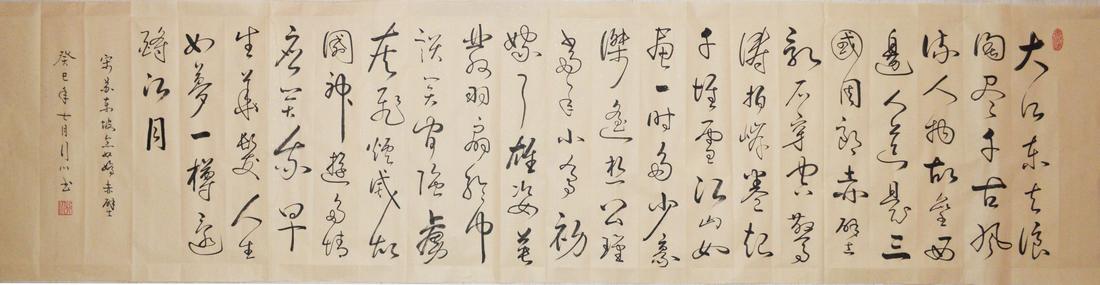 大江东去浪
淘尽千古风
流人物故垒西
邊人道是三
國周郎赤壁
乱石穿空驚
濤拍岸卷起
千堆雪江山如
畫一时多少豪
傑遥想公瑾
当年小乔初
嫁了雄姿英
发羽扇纶巾
談笑间强虜
灰飛煙滅故
國神遊多情
应笑我早
生華髮人生
如夢一樽還
酹江月
宋苏东坡念奴娇赤壁
癸巳年七月月川书